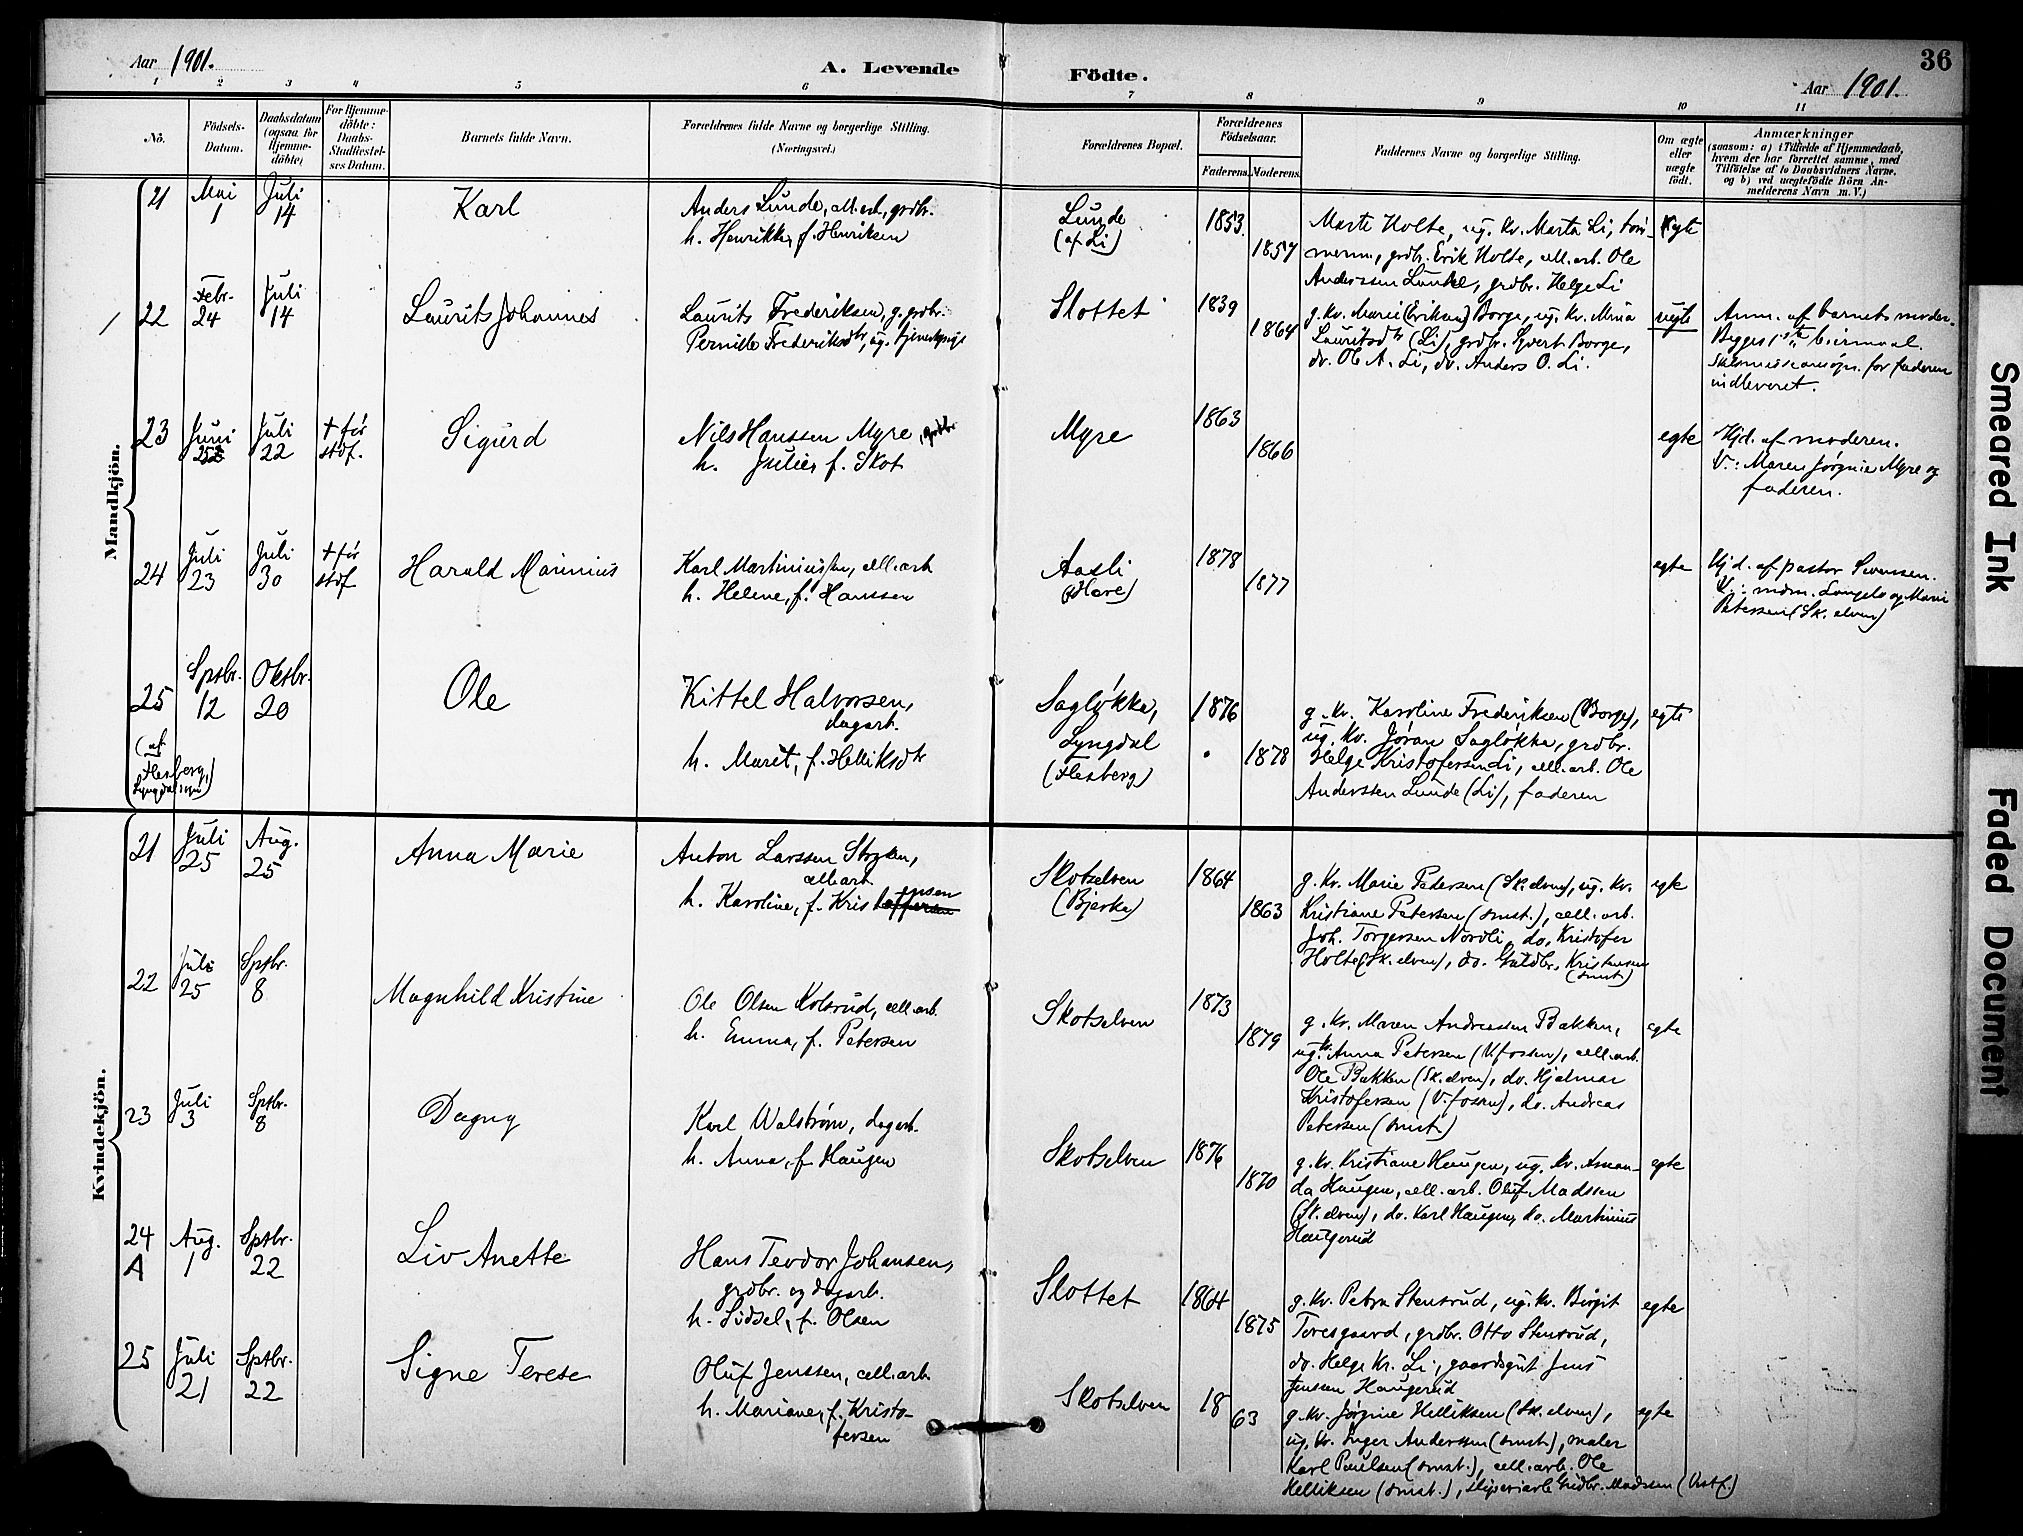 36
Aar 1901.
A. Levende Födte.
Aar 1901.
1 2 3 4 5 6 7 8 9 10 11
No.
Födsels-
Datum.
Daabsdatum
(ogsaa for
Hjemme-
döbte)
For Hjemme-
döbte:
Daabs-
Stadfæstel-
ses Datum.
Barnets fulde Navn.
Forældrenes fulde Navne og borgerlige Stilling.
(Næringsvei.)
Forældrenes Bopæl.
Forældrenes
Födselsaar.
Faderens. Moderens.
Faddernes Navne og borgerlige Stilling.
Om ægte
eller
uægte
födt.
Anmærkninger
(saasom: a) i Tilfælde af Hjemmedaab,
hvem der har forrettet samme, med
Tilföielse af to Daabsvidners Navne.
og b) ved uægtefödte Börn An-
melderens Navn m. V.)
Mandkjön.
21
Mai
1
Juli
14
Karl
Anders Lunde, cell.arb., grdbr.
h. Henrikke, f. Henriksen
Lunde
(af Li)
1853
1857
Marte Holte, ug. kv. Marta Li, tøm-
merm., grdbr. Erik Holte, cell.arb. Ole
Anderssen Lunde, grdbr. Helge Li
egte
22
Febr.
24
Juli
14
Laurits Johannes
Laurits Frederiksen, g. grdbr.
Pernille Frederiksdtr, ug. tjenestepige
Slottet
1839
1864
g. kv. Marie (Eriksen) Borge, ug. kv. Mina
Lauritsdtr (Li), grdbr. Syvert Borge,
do. Ole A. Li, do. Anders O. Li.
uegte
Anm. af barnets moder.
Begges 1ste leiermaal.
indleveret.
23
Juni
Juli
22
+ før
stdf.
Sigurd
Nils Hanssen Myre, grdbr
h. Julie, f. Skot
Myre
1863
1866
egte
Hjd. af moderen.
V.: Maren Jørgine Myre og
faderen.
24
Juli
23
Juli
30
+ før
stdf
Harald Marinius
Karl Martiniussen, cell.arb
h. Helene, f. Hanssen
Aasli
(Hare)
1878
1877
egte
Hjd. af pastor Svenssen.
V.: mdm. Langelo og Marie
Petersen (Sk.elven)
25
Sptbr.
12
Oktbr.
20
Ole
Kittel Halvorsen,
dagarb.
h. Marit, f. Helliksdtr
Sagløkka,
Lyngdal
(Flesberg)
1876
1878
g. kv. Karoline Frederiksen (Borge),
ug. kv. Jøran Sagløkka, grdbr.
Helge Kristofersen Li, cell.arb. Ole
Anderssen Lunde (Li), faderen
egte
(af
Flesberg,
Kvindekjön.
21
Juli
25
Aug.
25
Anna Marie
Anton Larssen Stryken,
cell.arb
h. Karoline, f. Kristensen
Skotselven
(Bjerka)
1864
1863
g. kv. Marie Petersen (Sk.elven), ug. kv.
Kristiane Petersen (smst.), cell.arb.
Joh. Torgersen Nordli, do. Kristofer
Holte (Sk.elven), do. Guldbr. Kristensen
(smst)
egte
22
Juli
25
Sptbr.
8
Magnhild Kristine
Ole Olsen Kolsrud, cell.arb.
h. Emma, f. Petersen
Skotselven
1873
1879
g. kv. Maren Andreassen Bakken,
ug. kv. Anna Petersen (V.fossen), cell.arb.
Ole Bakken (Sk.elven), do. Hjalmar
Kristofersen (V.fossen), do. Andreas
Petersen (smst.)
egte
23
Juli
3
Sptbr.
8
Dagny
Karl Walstrøm, dagarb.
h. Anna, f. Haugen
Skotselven
1876
1870
g. kv. Kristiane Haugen, ug. kv. Aman-
da Haugen, cell.arb. Oluf Madssen
(Sk.elven), do. Karl Haugen, do. Martinius
Haugerud
egte
24
A
Aug.
1
Sptbr.
22
Liv Anette
Hans Teodor Johansen,
grdbr. og dagarb.
h. Sidsel, f. Olsen
Slottet
1864
1875
g. kv. Petra Stensrud, ug. kv. Birgit
Toresgaard, grdbr. Otto Stensrud,
do. Helge Kr. Li, gaardsgut Jens
Jenssen Haugerud
egte
25
Juli
21
Sptbr.
22
Signe Terese
Oluf Jenssen, cell.arb.
h. Mariane, f. Kristo-
fersen
Skotselven
18
63
g. kv. Jørgine Helliksen (Sk.elven),
ug. kv. Inger Anderssen (smst.), maler
Karl Paulsen (smst.), cell.arb. Ole
Helliksen (smst.), sliperiarb. Gudbr. Madssen (Vestf.)
egte
Smeared Ink
Faded Document